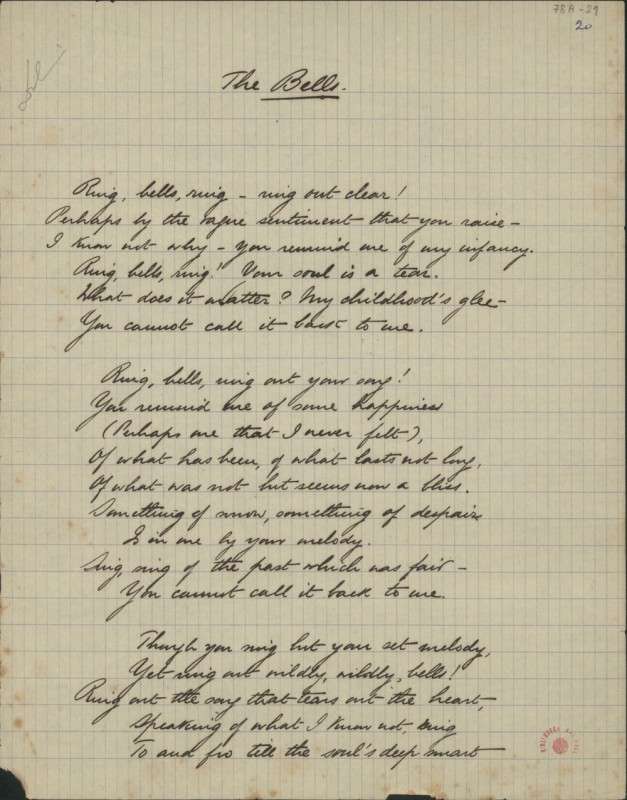 78A-29
20
The Bells.
Ring, bells, ring - ring out clear!
Perhaps by the vague sentiment that you raise -
I know not why - you remind me of my infancy.
Ring, bells, ring! Your soul is a tear.
What does it matter? My childhood's glee -
You cannot call it back to me.
Ring, bells, ring out your song!
You remind me of some happiness
(Perhaps one that I never felt),
Of what has been, of what lasts not long,
Of what was not but seems now a bliss.
Something of sorrow, something of despair
Is in me by your melody.
Sing, sing of the past which was fair -
You cannot call it back to me.
Though you ring but your set melody,
Yet ring out wildly, wildly, bells!
Ring out the song that tears out the heart,
Speaking of what I know not, ring
To and fro till the soul's deep smart